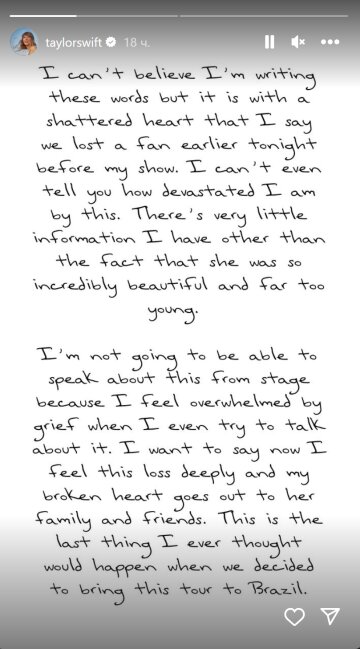 taylorswift 18 ч.
I can't believe I'm writing
these words but it is with a
shattered heart that I say
we lost a fan earlier tonight
before my show. I can't even
tell you how devastated I am
by this. There's very little
information I have other than
the fact that she was so
incredibly beautiful and far too
young.
I'm not going to be able to
speak about this from stage
because I feel overwhelmed by
grief when I even try to talk
about it. I want to say now I
feel this loss deeply and my
broken heart goes out to her
family and friends. This is the
last thing I ever thought
would happen when we decided
to bring this tour to Brazil.